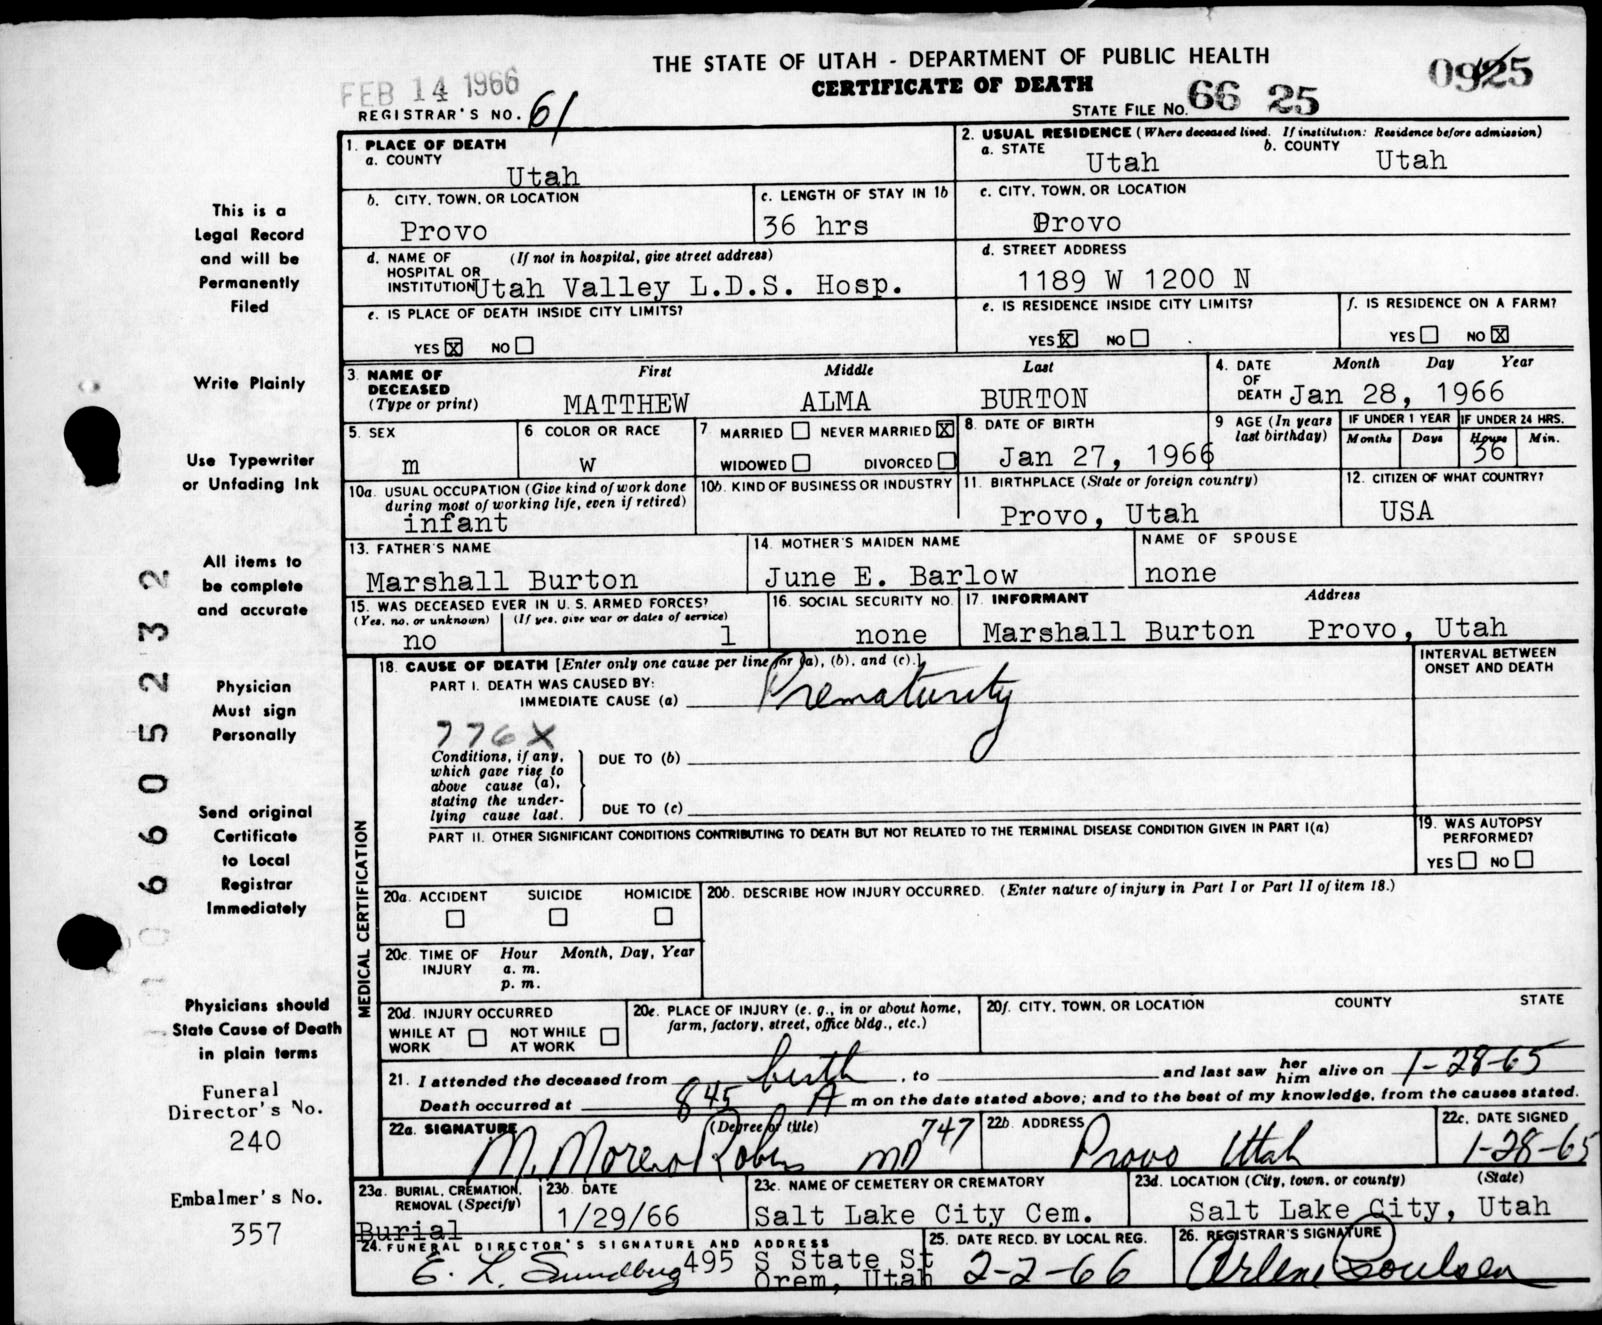 THE STATE OF UTAH - DEPARTMENT OF PUBLIC HEALTH
CERTIFICATE OF DEATH
FEB 14 1966
REGISTRAR'S NO. 61
STATE FILE NO. 66 25
0925
This is a
Legal Record
and will be
Permanently
Filed
Write Plainly
Use Typewriter
or Unfading Ink
All items to
be complete
and accurate
Physician
Must sign
Personally
Send original
Certificate
to Local
Registrar
Immediately
Physicians should
State Cause of Death
in plain terms
Funeral
Director's No.
240
Embalmer's No.
357
1. PLACE OF DEATH
a. COUNTY
Utah
2. USUAL RESIDENCE (Where deceased lived. If institution: Residence before admission)
a. STATE Utah
b. COUNTY Utah
b. CITY, TOWN, OR LOCATION
Provo
c. LENGTH OF STAY IN 1b
36 hrs
c. CITY, TOWN, OR LOCATION
Provo
d. NAME OF (If not in hospital, give street address)
HOSPITAL OR
INSTITUTION Utah Valley L.D.S. Hosp.
d. STREET ADDRESS
1189 W 1200 N
e. IS PLACE OF DEATH INSIDE CITY LIMITS?
YES X NO
e. IS RESIDENCE INSIDE CITY LIMITS?
YES X NO
f. IS RESIDENCE ON A FARM?
YES NO X
3. NAME OF DECEASED (Type or print)
First Middle Last
MATTHEW ALMA BURTON
4. DATE OF DEATH
Month Day Year
Jan 28, 1966
5. SEX
m
6 COLOR OR RACE
W
7. MARRIED NEVER MARRIED X
WIDOWED DIVORCED
8. DATE OF BIRTH
Jan 27, 1966
9 AGE (In years last birthday)
IF UNDER 1 YEAR
Months Days
IF UNDER 24 HRS.
Hours Min.
36
10a. USUAL OCCUPATION (Give kind of work done
during most of working life, even if retired)
infant
10b. KIND OF BUSINESS OR INDUSTRY
11. BIRTHPLACE (State or foreign country)
Provo, Utah
12. CITIZEN OF WHAT COUNTRY?
USA
13. FATHER'S NAME
Marshall Burton
14. MOTHER'S MAIDEN NAME
June E. Barlow
NAME OF SPOUSE
none
15. WAS DECEASED EVER IN U. S. ARMED FORCES?
(Yes, no, or unknown) (If yes, give war or dates of service)
no 1
16. SOCIAL SECURITY NO.
none
17. INFORMANT Address
Marshall Burton Provo, Utah
MEDICAL CERTIFICATION
18. CAUSE OF DEATH [Enter only one cause per line for (a), (b), and (c).]
INTERVAL BETWEEN
ONSET AND DEATH
PART I. DEATH WAS CAUSED BY:
IMMEDIATE CAUSE (a) Prematurity
776X
Conditions, if any,
which gave rise to
above cause (a),
stating the under-
lying cause last.
DUE TO (b)
DUE TO (c)
PART II. OTHER SIGNIFICANT CONDITIONS CONTRIBUTING TO DEATH BUT NOT RELATED TO THE TERMINAL DISEASE CONDITION GIVEN IN PART I(a)
19. WAS AUTOPSY
PERFORMED?
YES NO
20a. ACCIDENT SUICIDE HOMICIDE
20b. DESCRIBE HOW INJURY OCCURRED. (Enter nature of injury in Part I or Part II of item 18.)
20c. TIME OF INJURY
Hour Month, Day, Year
a. m.
p. m.
20d. INJURY OCCURRED
WHILE AT WORK
NOT WHILE AT WORK
20e. PLACE OF INJURY (e. g., in or about home,
farm, factory, street, office bldg., etc.)
20f. CITY, TOWN, OR LOCATION COUNTY STATE
21. I attended the deceased from birth, to and last saw her him alive on 1-28-65
Death occurred at 845 A m on the date stated above; and to the best of my knowledge, from the causes stated.
22a. SIGNATURE (Degree or title) 747
M. Moreno Robins MD
22b. ADDRESS
Provo Utah
22c. DATE SIGNED
1-28-65
23a. BURIAL, CREMATION,
REMOVAL (Specify)
Burial
23b. DATE
1/29/66
23c. NAME OF CEMETERY OR CREMATORY
Salt Lake City Cem.
23d. LOCATION (City, town, or county) (State)
Salt Lake City, Utah
24. FUNERAL DIRECTOR'S SIGNATURE AND ADDRESS
E. L. Sundberg 495 S State St
Orem, Utah
25. DATE RECD. BY LOCAL REG.
2-2-66
26. REGISTRAR'S SIGNATURE
Arlene Poulsen
660 5232